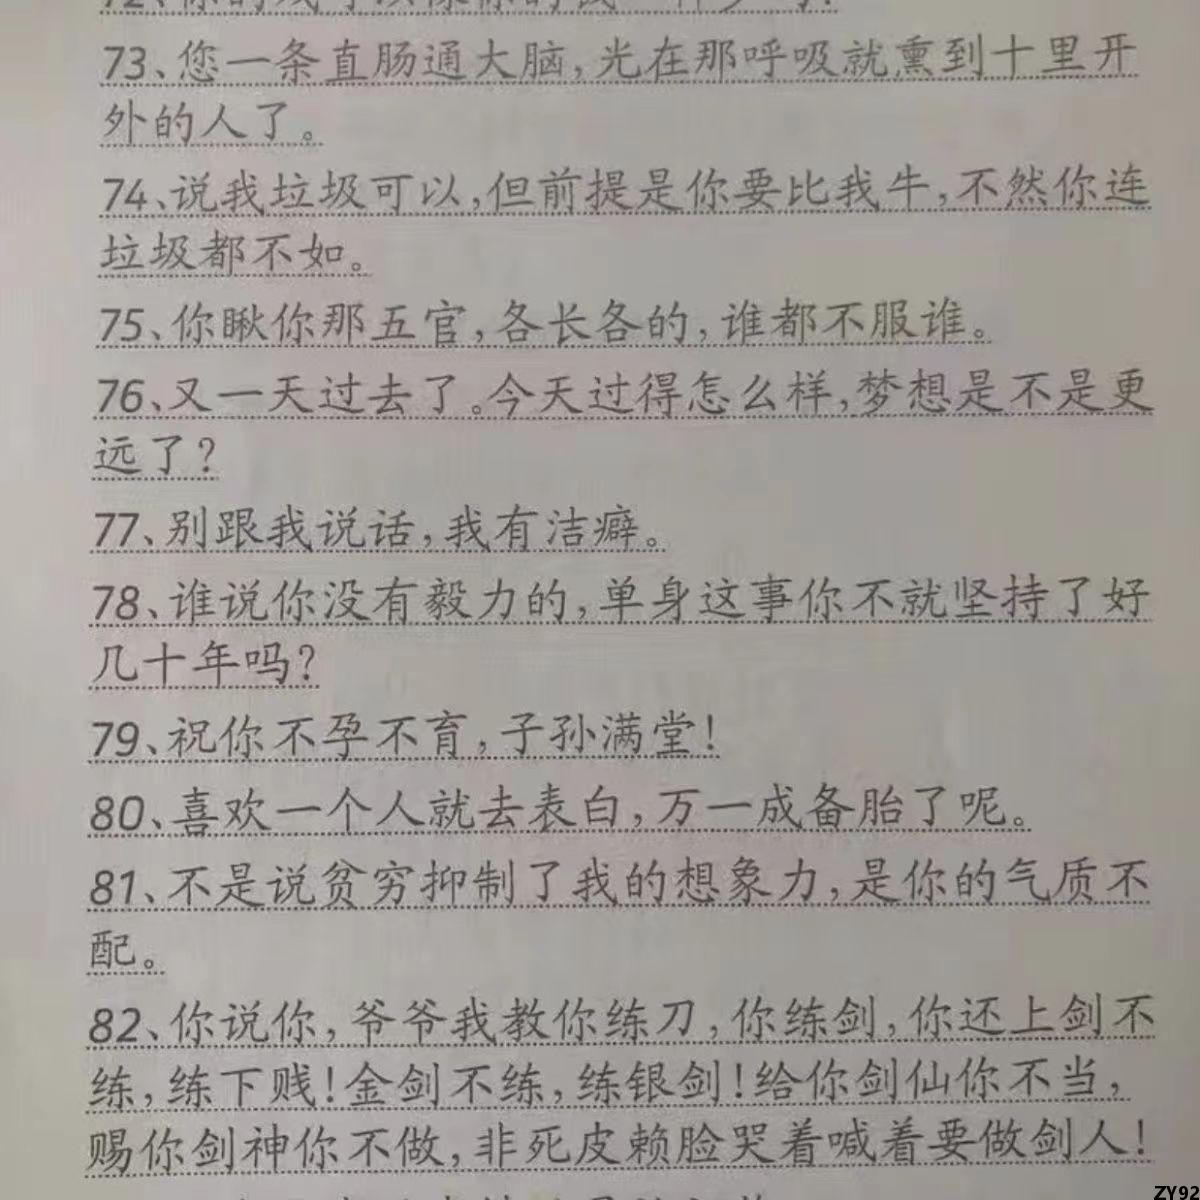 73、您一条直肠通大脑,光在那呼吸就熏到十里开
外的人了。
74、说我垃圾可以,但前提是你要比我牛,不然你连
垃圾都不如。
75、你瞅你那五官,各长各的,谁都不服谁。
76、又一天过去了。今天过得怎么样,梦想是不是更
远了?
77、别跟我说话,我有洁癖。
78、谁说你没有毅力的,单身这事你不就坚持了好
几十年吗?
79、祝你不孕不育,子孙满堂!
80、喜欢一个人就去表白,万一成备胎了呢。
81、不是说贫穷抑制了我的想象力,是你的气质不
配。
82、你说你,爷爷我教你练刀,你练剑,你还上剑不
练,练下贱!金剑不练,练银剑!给你剑仙你不当,
赐你剑神你不做,非死皮赖脸哭着喊着要做剑人!
ZY92